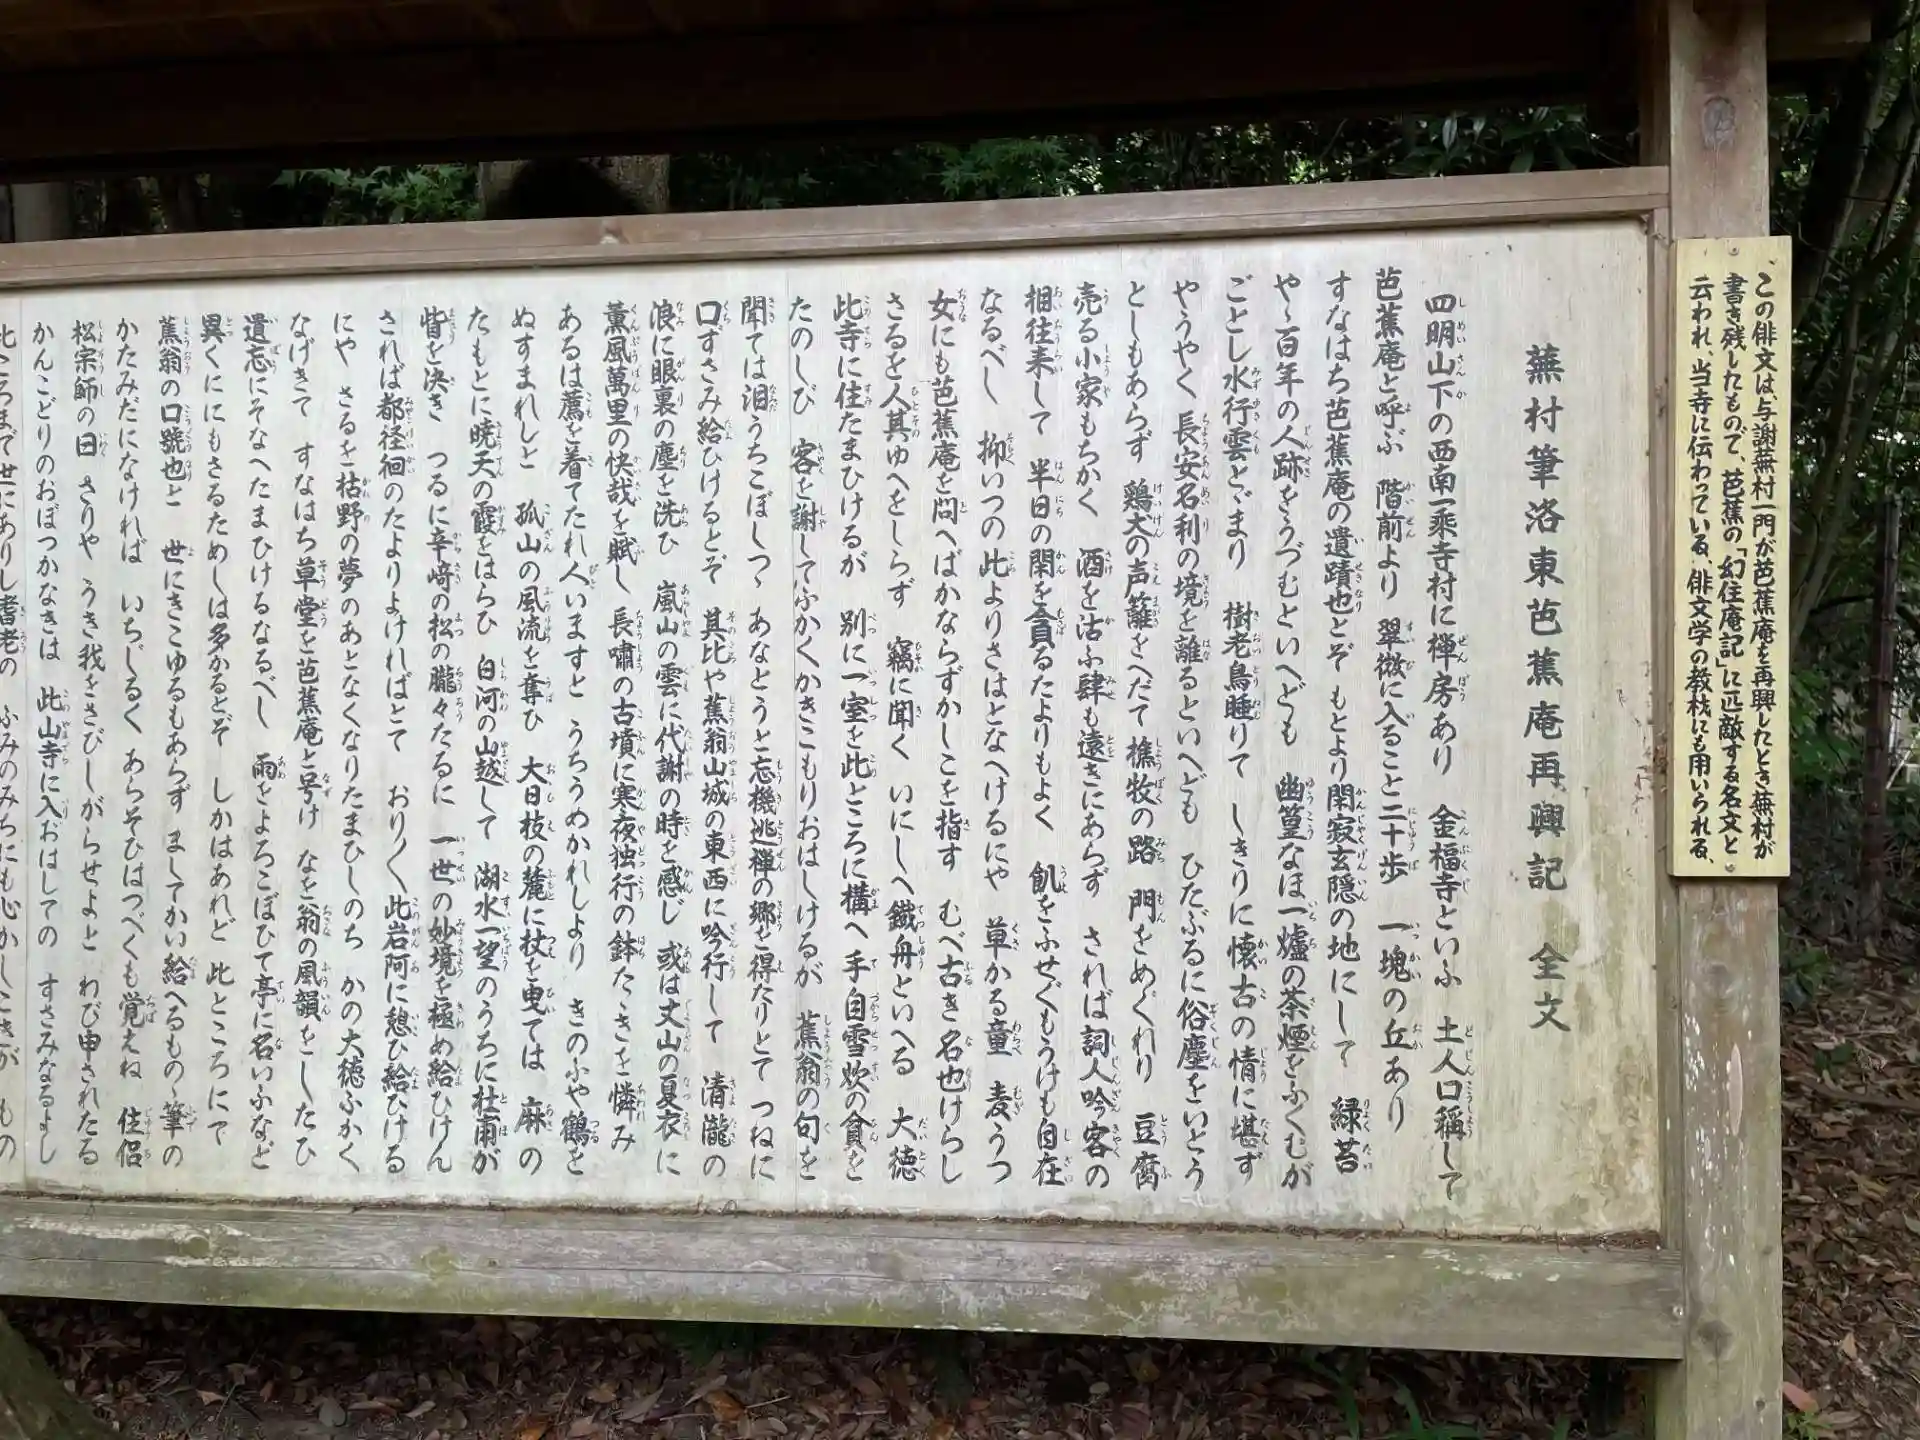 この俳文は、与謝蕪村一門が芭蕉庵を再興したとき蕪村が
書き残したもので、芭蕉の「幻住庵記」に匹敵する名文と
云われ、当寺に伝わっている、俳文学の教材にも用いられる、
蕪村筆洛東芭蕉庵再興記 全文
四明山下の西南一乘寺村に禅房あり 金福寺といふ 土人口稱して
芭蕉庵と呼ぶ 階前より 翠微に入ること二十歩 一塊の丘あり
すなはち芭蕉庵の遺蹟也とぞ もとより閑寂玄隠の地にして 緑苔
やゝ百年の人跡をうづむといへども 幽篁なほ一爐の茶煙をふくむが
ごとし水行雲とゞまり 樹老鳥睡りて しきりに懐古の情に堪ず
やうやく長安名利の境を離るといへども ひたぶるに俗塵をいとう
としもあらず 鶏犬の声籬をへだて 樵牧の路 門をめぐれり 豆腐
売る小家もちかく 酒を沽ふ肆も遠きにあらず されば詞人吟客の
相往来して 半日の閑を貪るたよりもよく 飢をふせぐもうけも自在
なるべし 抑いつの此よりさはとなへけるにや 草かる童 麦うつ
女にも芭蕉庵を問へばかならずかしこを指す むべ古き名也けらし
さるを人其ゆへをしらず 竊に聞く いにしへ鐵舟といへる 大徳
此寺に住たまひけるが 別に一室を此ところに構へ 手自雪炊の貧を
たのしび 客を謝してふかくかきこもりおはしけるが 蕉翁の句を
聞ては泪うちこぼしつゝ あなとうと忘機逃禅の郷を得たりとて つねに
口ずさみ給ひけるとぞ 其比や蕉翁山城の東西に吟行して 清瀧の
浪に眼裏の塵を洗ひ 嵐山の雲に代謝の時を感じ 或は丈山の夏衣に
薫風萬里の快哉を賦し 長嘯の古墳に寒夜独行の鉢たゝきを憐み
あるは薦を着てたれ人いますと うちうめかれしより きのふや鶴を
ぬすまれしと 孤山の風流を奪ひ 大日枝の麓に杖を曳ては 麻の
たもとに暁天の霞をはらひ 白河の山越して 湖水一望のうちに杜甫が
眥を決き つるに辛﨑の松の朧々たるに 一世の妙境を極め給ひけん
されば都径徊のたよりよければとて おりく此岩阿に憩ひ給ひける
にや さるを枯野の夢のあとなくなりたまひしのち かの大徳ふかく
なげきて すなはち草堂を芭蕉庵と号け なを翁の風韻をしたひ
遺忘にそなへたまひけるなるべし 雨をよろこぼひて亭に名いふなど
異くににもさるためしは多かるとぞ しかはあれど 此ところにて
蕉翁の口號也と 世にきこゆるもあらず ましてかい給へるものゝ筆の
かたみだになければ いちじるく あらそひはつべくも覚えね 住侶
松宗師の曰 さりや うき我をさびしがらせよと わび申されたる
かんこどりのおぼつかなきは 此山寺に入おはしての すさみなるよし
此ころまで世にありし耆老の ふみのみちにも心かしこきが もの